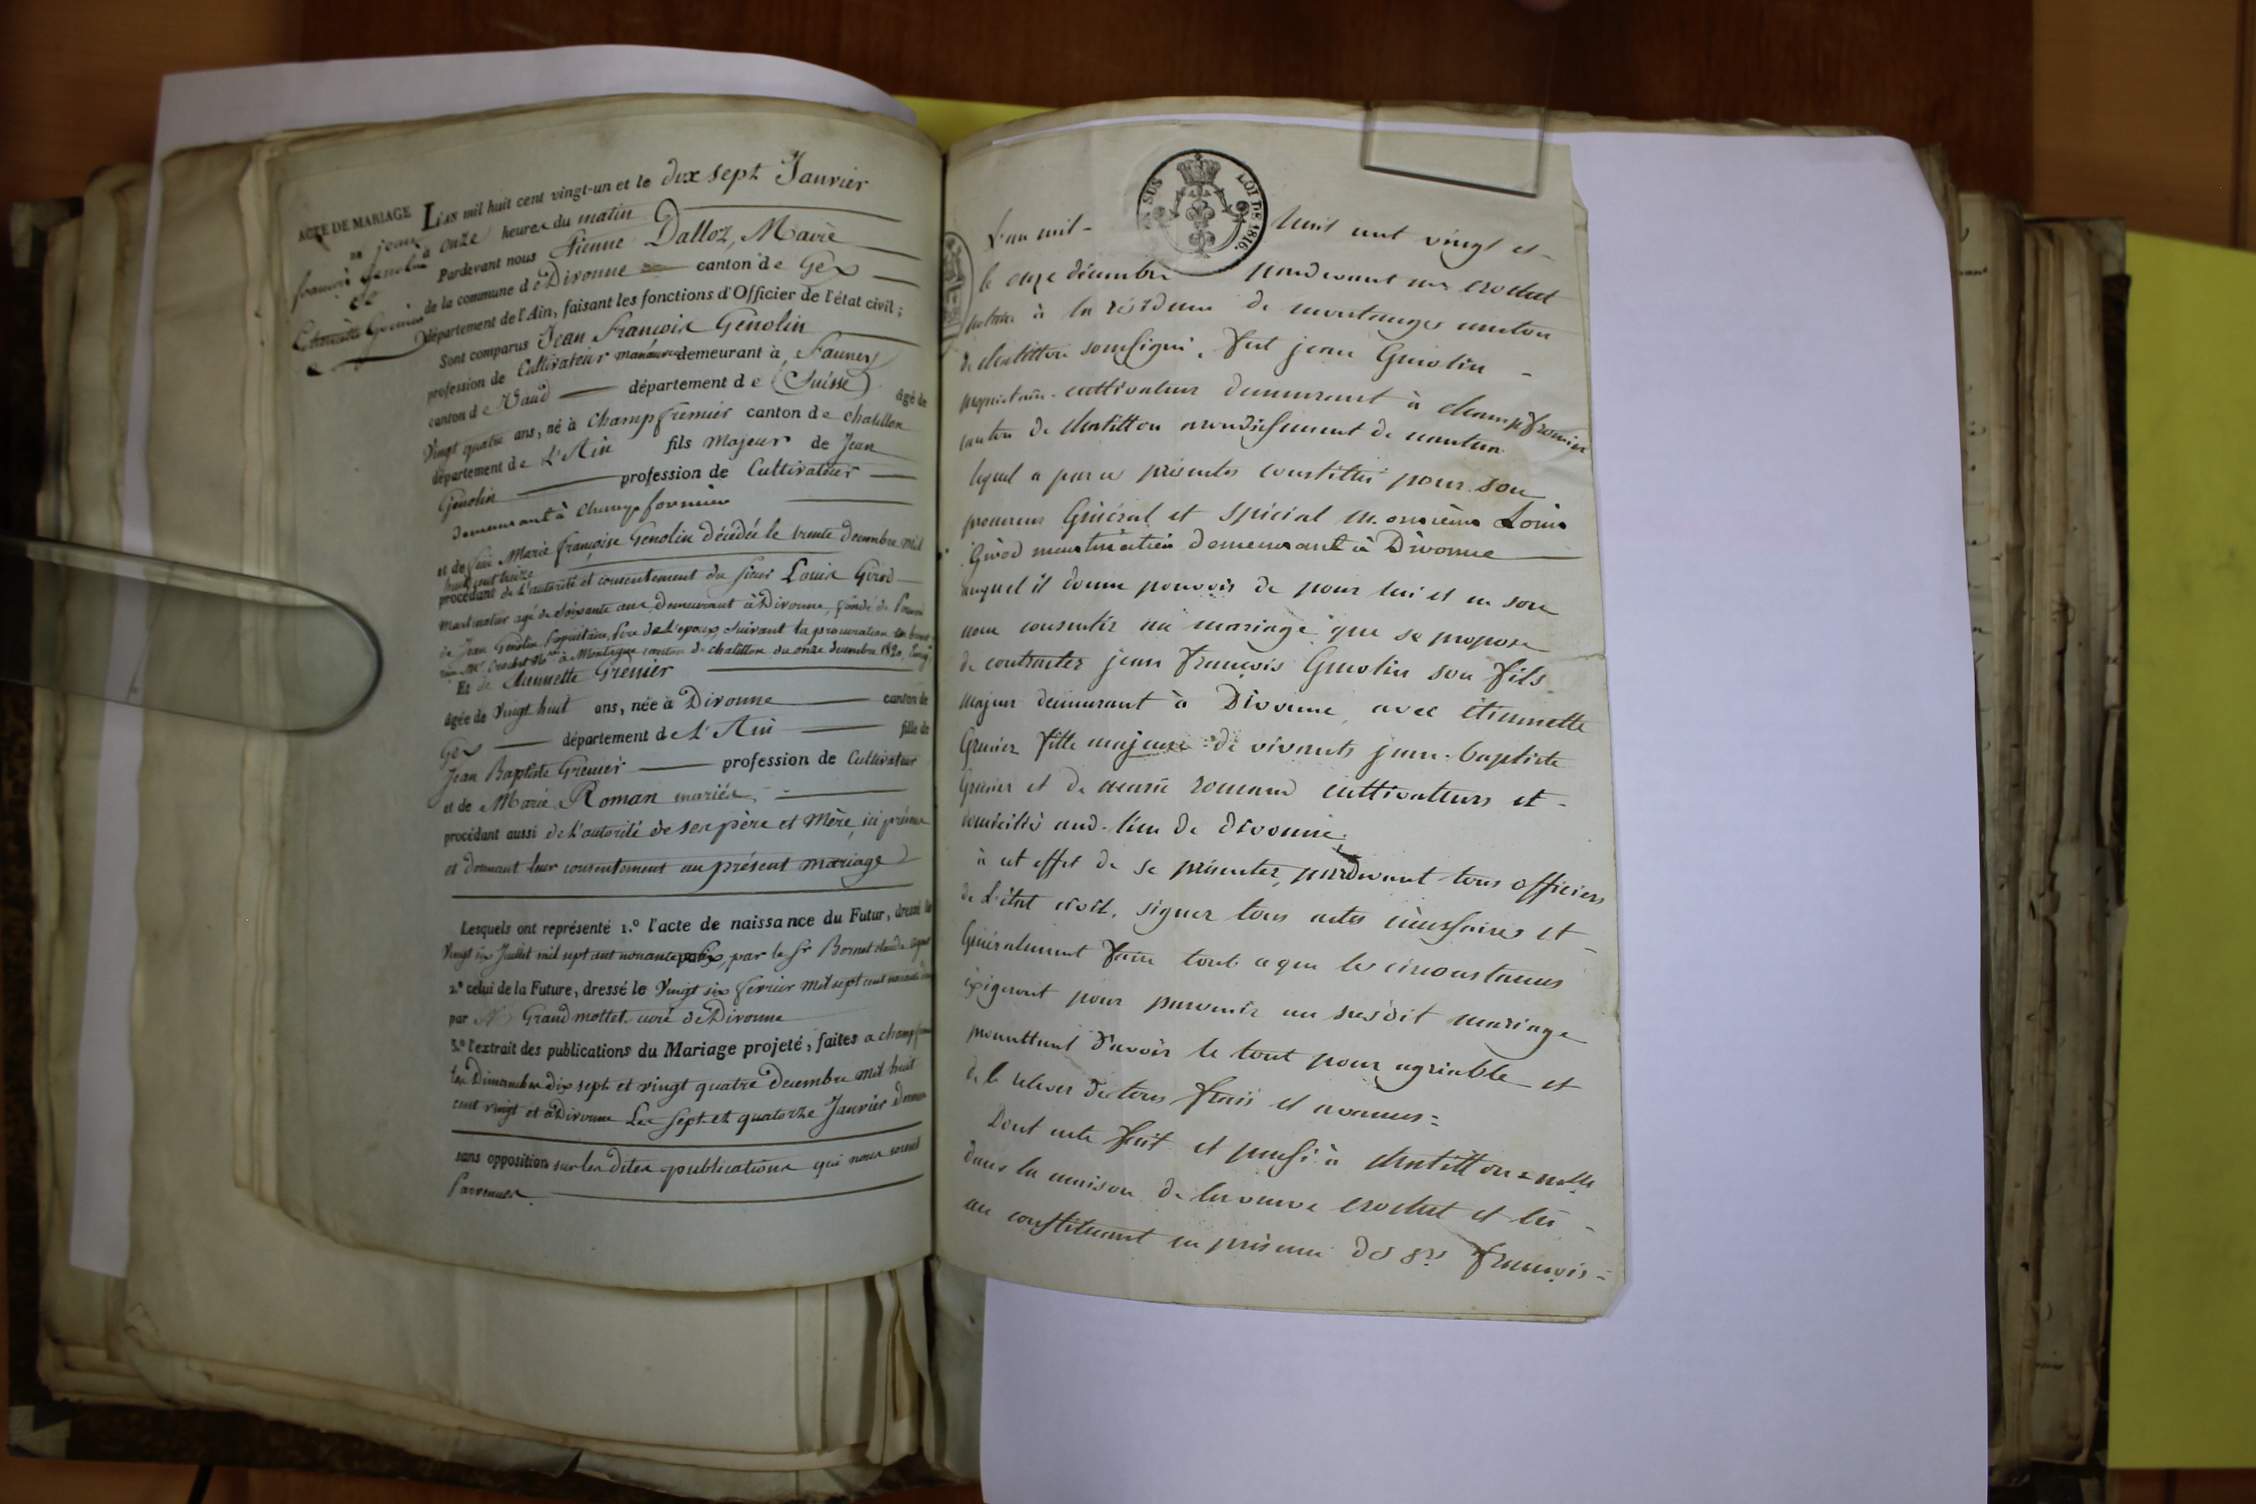 ACTE DE MARIAGE
DE jean
françois Genolin
et
Etiennette Grenier
L'AN mil huit cent vingt-un et le dix sept Janvier
à onze heures du matin
Pardevant nous Etienne Dalloz, Maire
de la commune de Divonne canton de Gex
département de l'Ain, faisant les fonctions d'Officier de l'état civil;
Sont comparus Jean François Genolin
profession de Cultivateur demeurant à
canton de Vaud département de (Suisse) âgé de
Vingt quatre ans, né à Champfremier canton de chatillon
département de L'Ain fils Majeur de Jean
Genolin profession de Cultivateur
demeurant à Champformier
et de feue Marie françoise Genolin décédée le trente decembre mil
huit cent treize
procédant de l'autorité et consentement du sieur Louis Girod
agé de soixante ans demeurant à Divonne, fondé de Pouvoir
de Jean Genolin propriétaire, père de l'epoux, suivant la procuration
Mre Crochet Nore à Montange canton de chatillon du onze decembre 1820,
Et de Etiennette Grenier
âgée de Vingt huit ans, née à Divonne canton de
Gex département de L'Ain fille de
Jean Baptiste Grenier profession de Cultivateur
et de Marie Roman mariés
procédant aussi de l'autorité de ses père et Mère, ici présens
et donnant leur consentement au présent mariage
Lesquels ont représenté 1.º l'acte de naissance du Futur, dressé le
Vingt six Juillet mil sept cent nonante par le Sr Bornet
2.º celui de la Future, dressé le Vingt six fevrier mil sept cent
par Grandmottet curé de Divonne
3.º l'extrait des publications du Mariage projeté, faites a
les Dimanches dix sept et vingt quatre decembre mil huit
cent vingt et à Divonne Les sept et quatorze Janvier
sans opposition sur les dites publications qui nous soient
Parvenues
SUS LOI DE 1816.
L'an mil huit cent vingt et
le onze décembre pardevant me crochet
notaire à la résidence de montanges canton
de chatillon soussigné, fut jean Genolin
propriétaire cultivateur demeurant à champfromier
canton de chatillon arrondissement de nantua
lequel a par ce présentes constitué pour son
procureur Général et spécial Louis
Girod demeurant à Divonne
auquel il donne pouvoir de pour lui et en son
nom consentir au mariage que se propose
de contracter jean françois Genolin son fils
majeur demeurant à Divonne avec étiennette
Grenier fille majeure de vivants jean-baptiste
Grenier et de marie romand cultivateurs et
domiciliés aud. lieu de divonne,
à cet effet de se présenter, pardevant tous officiers
de l'état civil, signer tous actes nécessaires et
Généralement faire tout ce que les circonstances
éxigeront pour parvenir au susdit mariage
promettant d'avoir le tout pour agréable et
de le relever de tous frais et avances =
Dont acte fait et passé à chatillon
dans la maison de la veuve crochet et lu
au constituant en présence des srs françois =